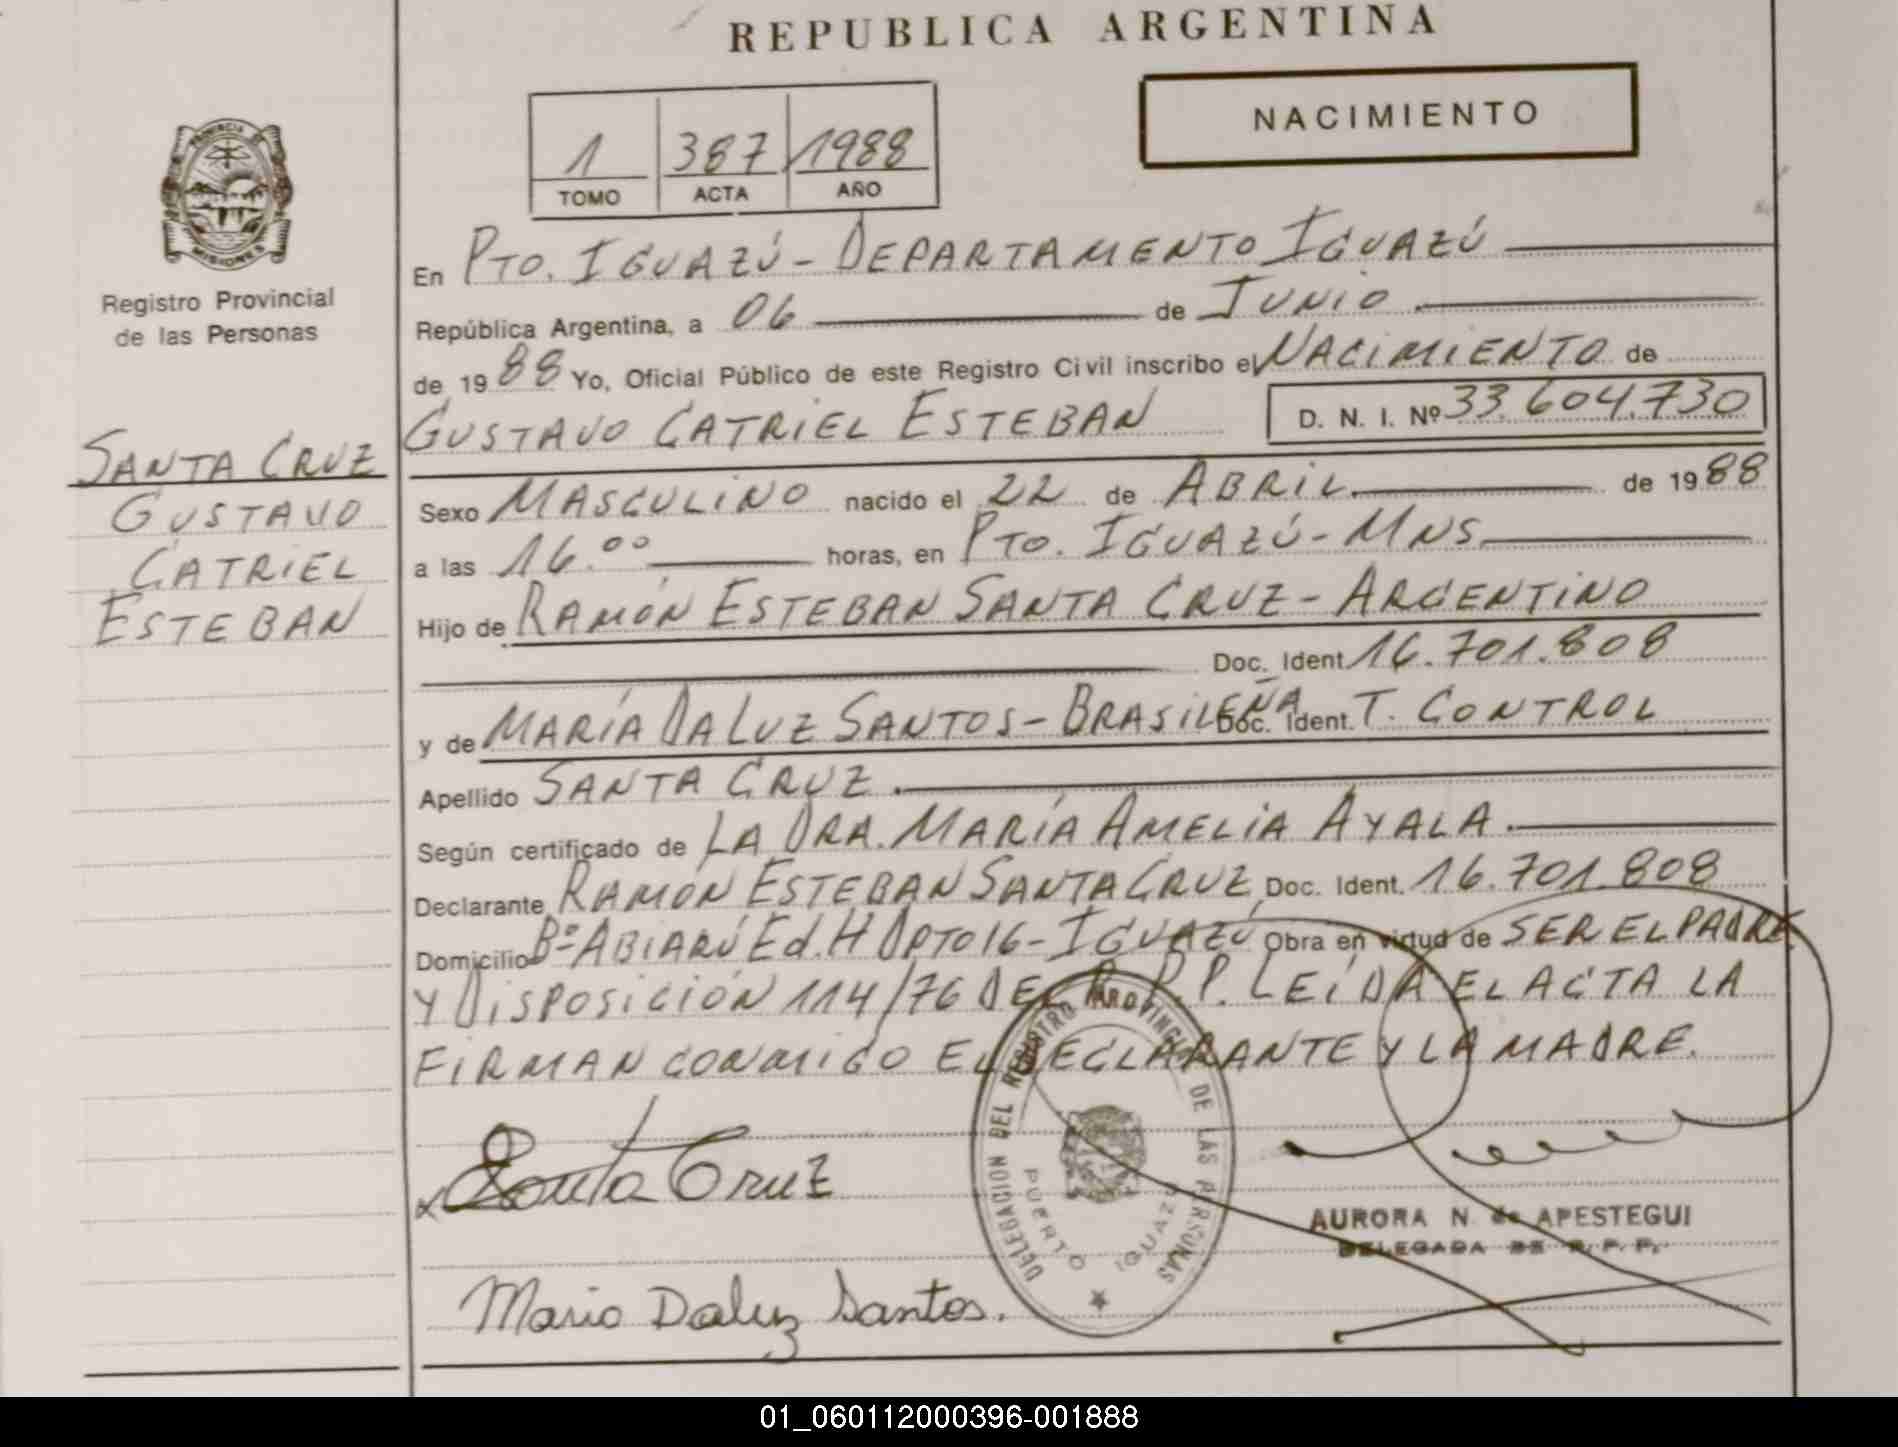 REPUBLICA ARGENTINA
NACIMIENTO
1 387 1988
TOMO ACTA AÑO
PROVINCIA DE
MISIONES
Registro Provincial
de las Personas
SANTA CRUZ
GUSTAVO
CATRIEL
ESTEBAN
En PTO. IGUAZÚ - DEPARTAMENTO IGUAZÚ
República Argentina, a 06 de JUNIO
de 1988 Yo, Oficial Público de este Registro Civil inscribo el NACIMIENTO de
GUSTAVO CATRIEL ESTEBAN D. N. I. Nº 33.604.730
Sexo MASCULINO nacido el 22 de ABRIL de 1988
a las 16.00 horas, en PTO. IGUAZÚ - MNS
Hijo de RAMÓN ESTEBAN SANTA CRUZ - ARGENTINO
Doc. Ident 16.701.808
y de MARÍA DA LUZ SANTOS - BRASILEÑA Doc. Ident. T. CONTROL
Apellido SANTA CRUZ.
Según certificado de LA DRA. MARÍA AMELIA AYALA.
Declarante RAMÓN ESTEBAN SANTA CRUZ Doc. Ident. 16.701.808
Domicilio Bº ABIARÚ Ed. H DPTO 16 - IGUAZÚ Obra en virtud de SER EL PADRE
Y DISPOSICIÓN 114/76 DEL R. P. P. LEÍDA EL ACTA LA
FIRMAN CONMIGO EL DECLARANTE Y LA MADRE.
Santa Cruz
DELEGACION DEL REGISTRO PROVINCIAL DE LAS PERSONAS
PUERTO IGUAZU
AURORA N. de APESTEGUI
DELEGADA DE R. P. P.
Maria Daluz Santos.
01_060112000396-001888